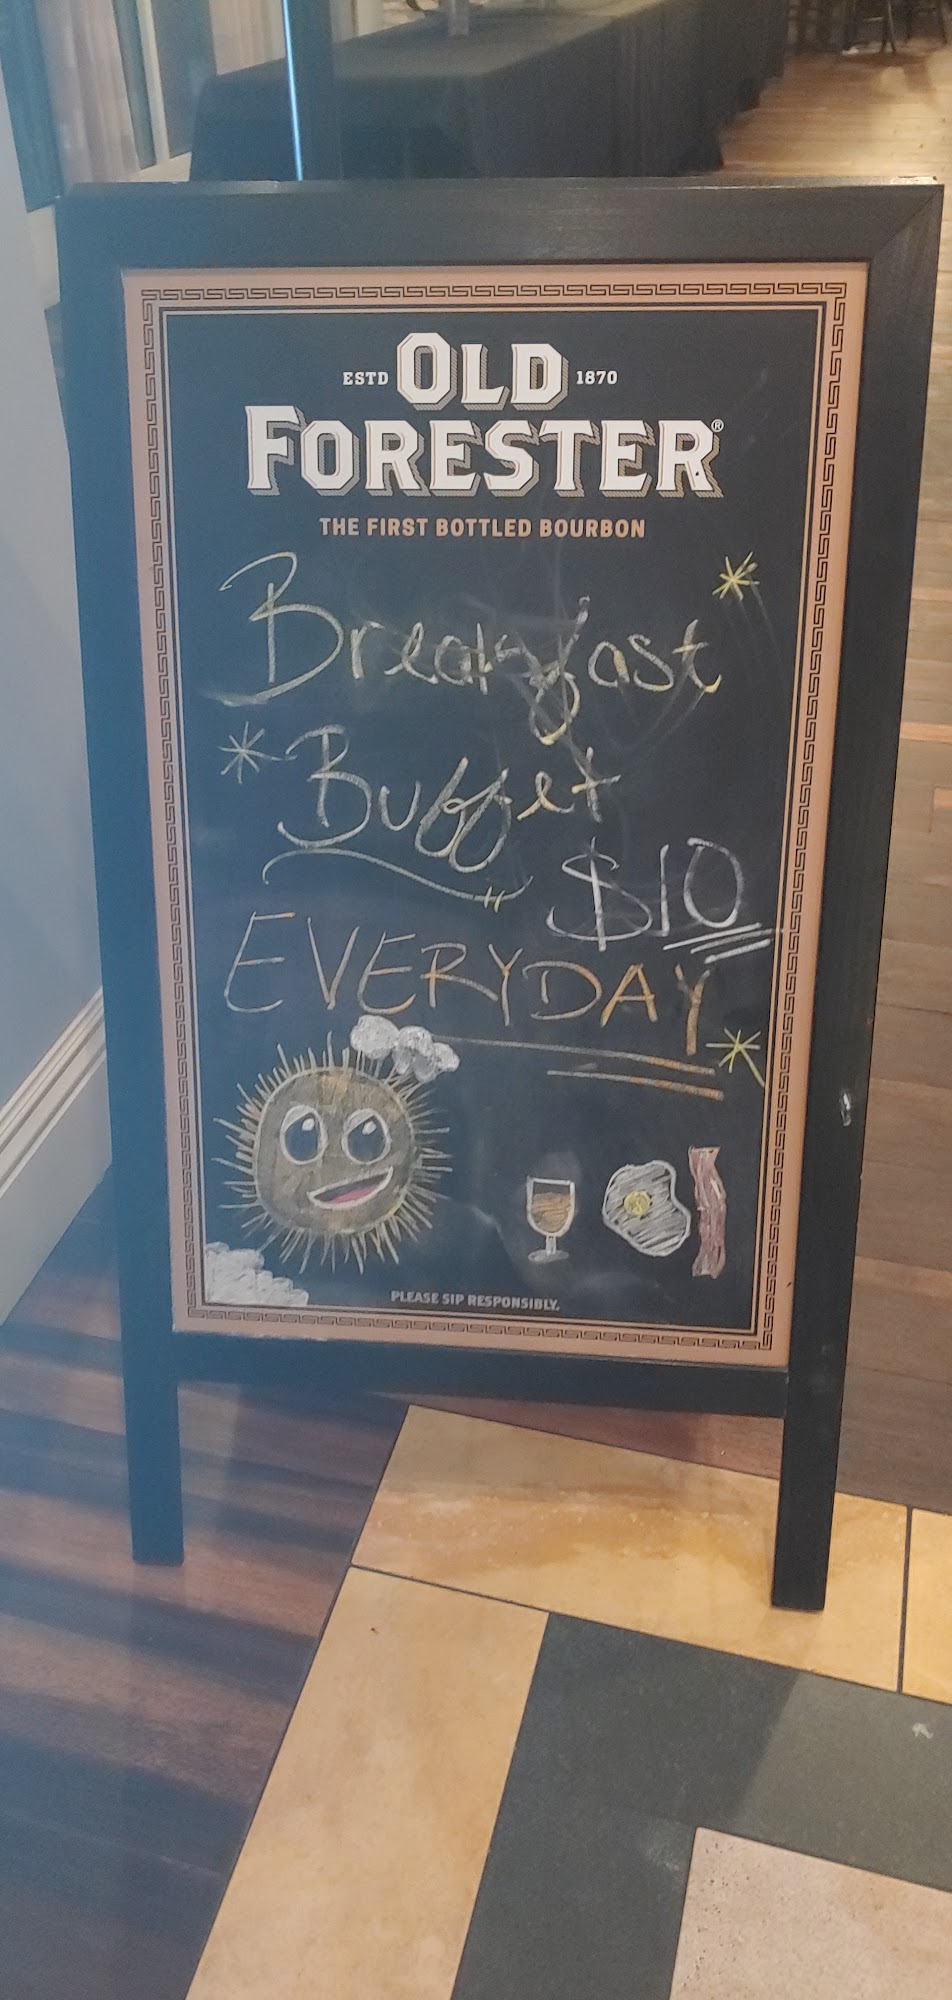 ESTD OLD 1870
FORESTER®
THE FIRST BOTTLED BOURBON
Breakfast
Buffet
$10
EVERYDAY
PLEASE SIP RESPONSIBLY.